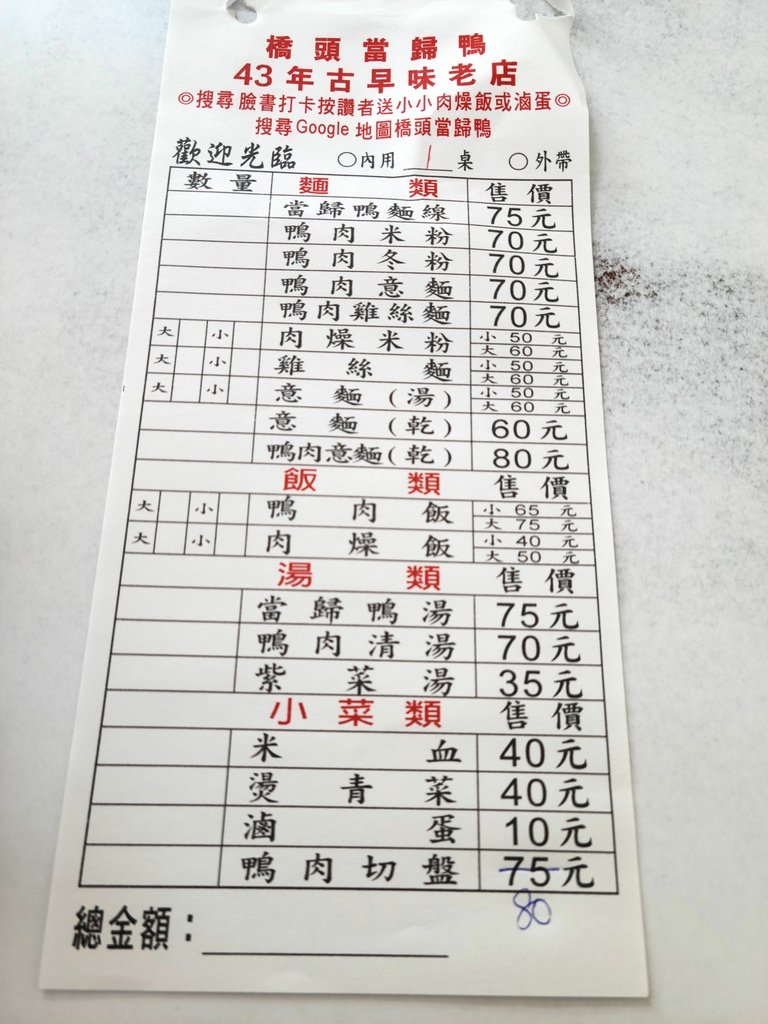 橋頭當歸鴨
43年古早味老店
◎搜尋臉書打卡按讚者送小小肉燥飯或滷蛋◎
搜尋Google 地圖橋頭當歸鴨
歡迎光臨 ○內用 1 桌 ○外帶
數量 麵類 售價
當歸鴨麵線 75元
鴨肉米粉 70元
鴨肉冬粉 70元
鴨肉意麵 70元
鴨肉雞絲麵 70元
大 小 肉燥米粉 小 50 元 大 60 元
大 小 雞絲麵 小 50 元 大 60 元
大 小 意麵(湯) 小 50 元 大 60 元
意麵(乾) 60元
鴨肉意麵(乾) 80元
飯類 售價
大 小 鴨肉飯 小 65 元 大 75 元
大 小 肉燥飯 小 40 元 大 50 元
湯類 售價
當歸鴨湯 75元
鴨肉清湯 70元
紫菜湯 35元
小菜類 售價
米血 40元
燙青菜 40元
滷蛋 10元
鴨肉切盤 75元
80
總金額：